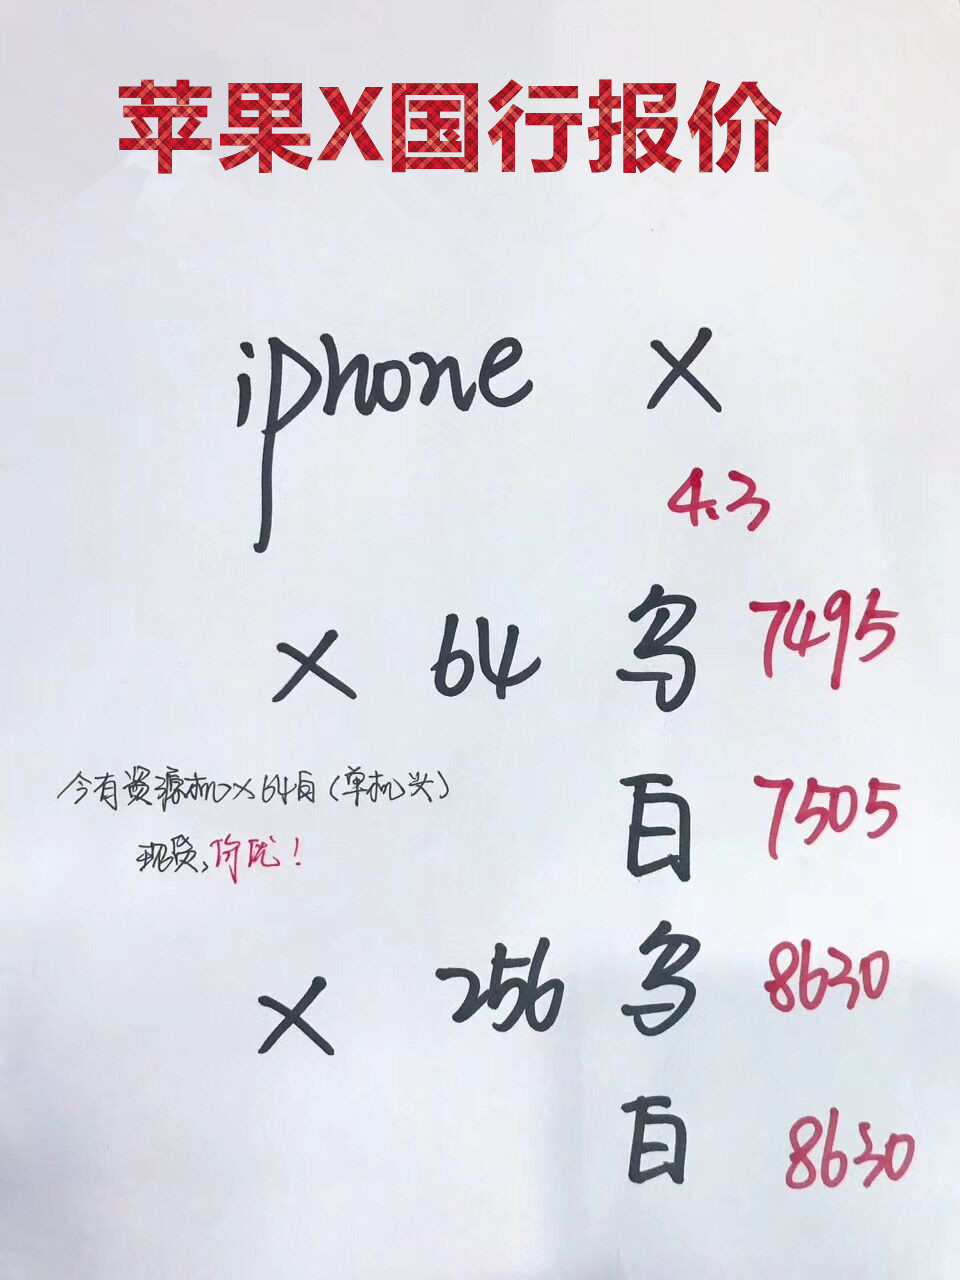 苹果X国行报价
iphone X
4.3
X 64 乌 7495
白 7505
今有资源机X64白(单机头)
现货,价优!
X 256 乌 8630
白 8630